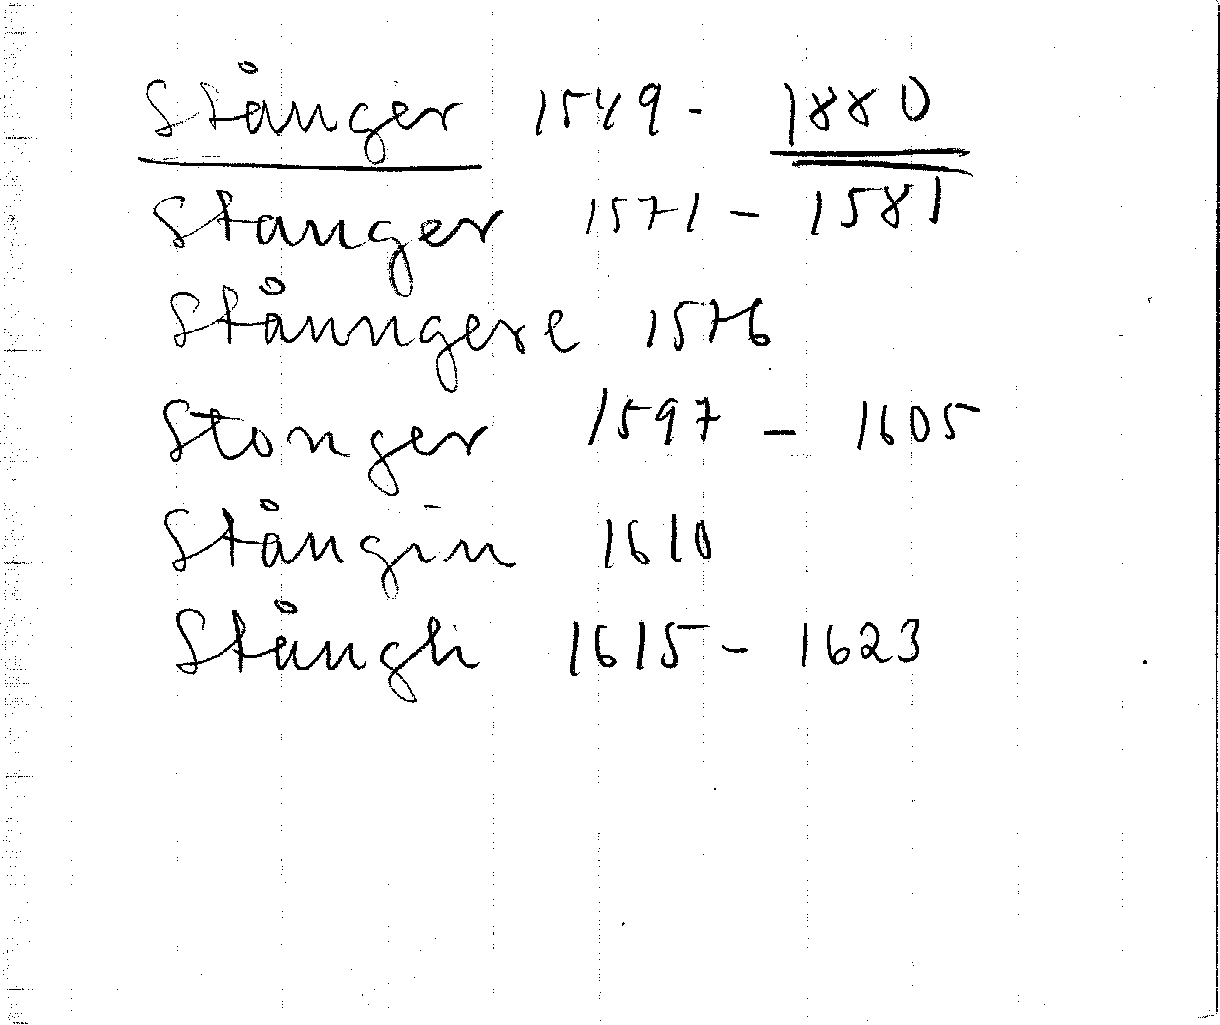 Stånger 1549 - 1880
Stanger 1571 - 1581
Stånngere 1576
Stonger 1597 - 1605
Stångin 1610
Stångh 1615 - 1623